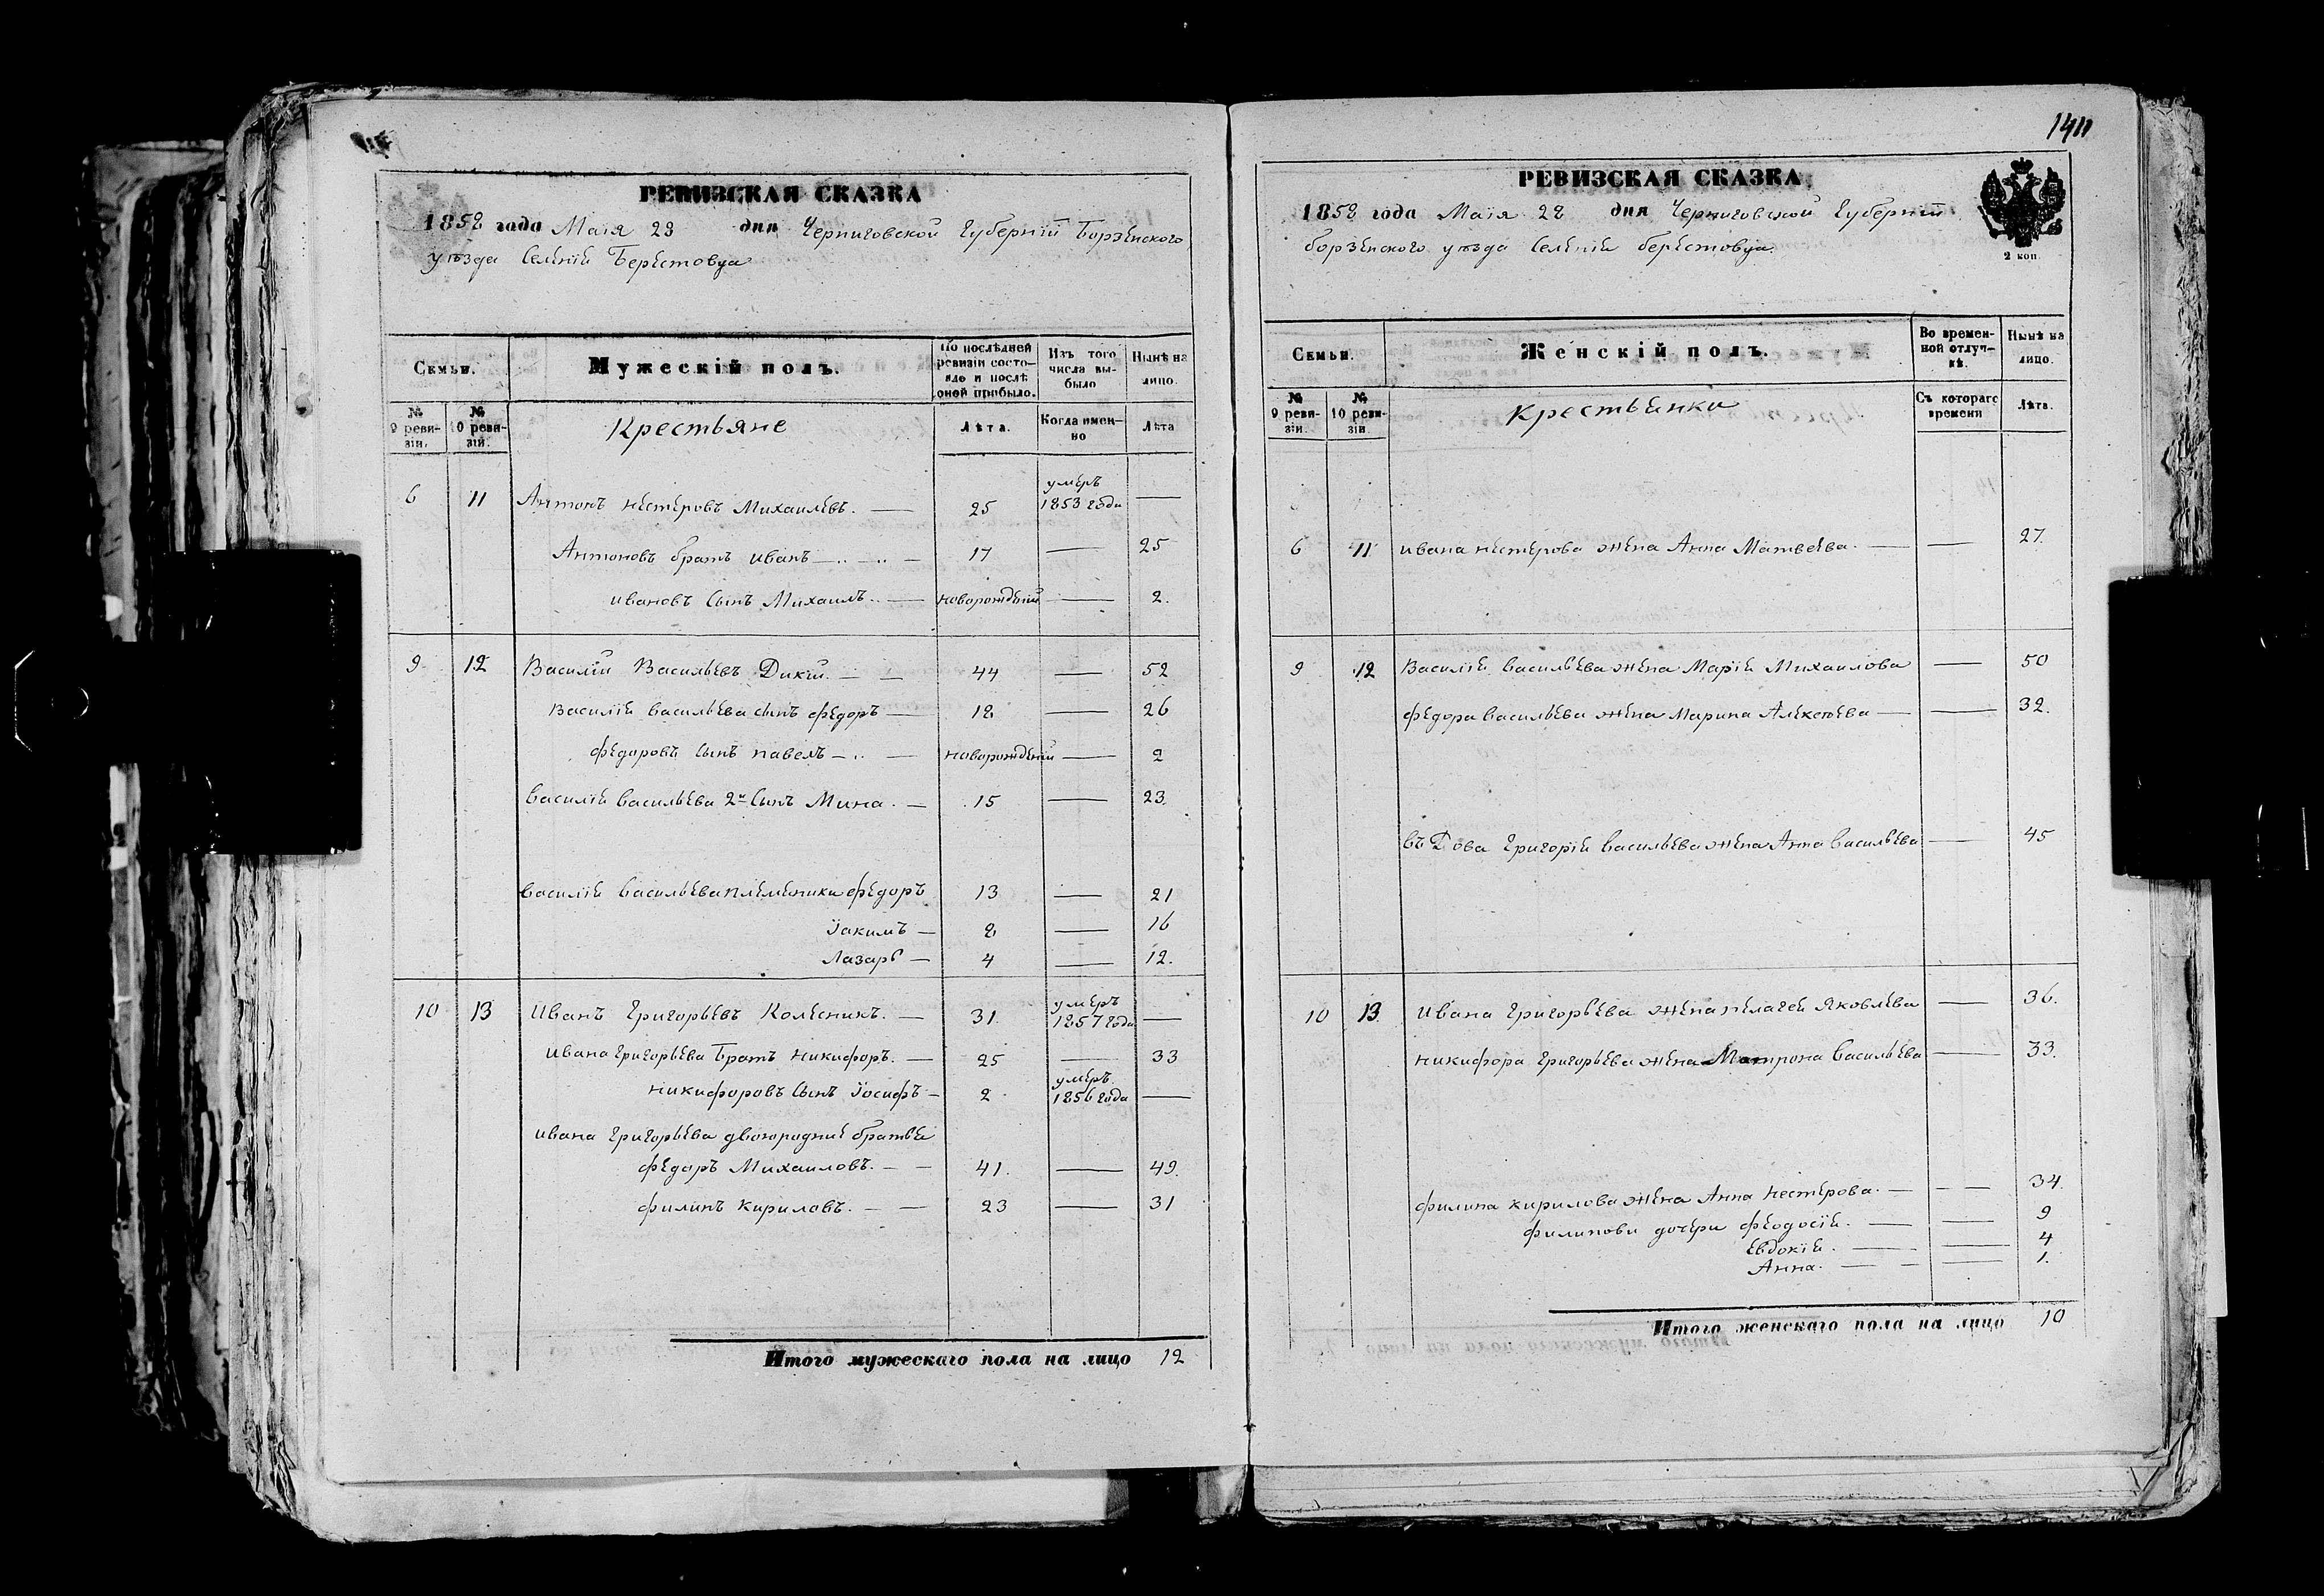 РЕВИЗСКАЯ СКАЗКА
1858 года Маія 28 дня Черниговской Губерніи Борзенского
уѣзда Селенія Берестовца
Семьи.
Мужескій полъ.
По послѣдней ревизіи состояло и послѣ оной прибыло.
Изъ того числа выбыло
Нынѣ на лицо.
№ 9 ревизіи.
№ 10 ревизіи.
Крестьяне
Лѣта.
Когда именно
Лѣта
6 11 Антонъ Нестеровъ Михаилевъ. — 25 умеръ 1853 года —
Антоновъ братъ Иванъ — 17 — 25
Ивановъ сынъ Михаилъ. — новорожденій — 2.
9 12 Василій Васильевъ Дикій. — 44 — 52
Василія Васильева сынъ Федоръ — 18 — 26
Федоровъ сынъ Павелъ — новорожденій — 2
Василія Васильева 2й сынъ Мина. — 15 — 23.
Василія Васильева племеники Федоръ 13 — 21
Іакимъ — 8 — 16
Лазарь — 4 — 12.
10 13 Иванъ Григорьевъ Колесникъ. — 31. умеръ 1857 года —
Ивана Григорьева братъ Никифоръ. — 25 — 33
Никифоровъ сынъ Іосифъ — 2 умеръ 1856 года —
Ивана Григорьева двоюродніе братья
Федоръ Михаиловъ. — 41. — 49.
Филипъ Кириловъ. — 23 — 31
Итого мужескаго пола на лицо 12
1411
РЕВИЗСКАЯ СКАЗКА,
1858 года Маія 28 дня Черниговской Губерніи
Борзенского уѣзда Селенія Берестовца.
2 коп.
Семьи.
Женскій полъ.
Во временной отлучкѣ.
Нынѣ на лицо.
№ 9 ревизіи.
№ 10 ревизіи.
Крестьянки
Съ котораго времени
Лѣта.
6 11 Ивана Нестерова жена Анна Матвеева. — — 27.
9 12 Василія Васильева жена Марія Михаилова — 50
Федора Васильева жена Марина Алексеева — — 32.
въДова Григорія Васильева жена Анна Васильева — 45
10 13. Ивана Григорьева жена Пелагея Яковлева — 36.
Никифора Григорьева жена Матрона Васильева — 33.
Филипа Кирилова жена Анна Нестерова. — — 34.
Филипови дочери Феодосія. — — 9
Евдокія. — — 4
Анна. — — 1.
Итого женскаго пола на лицо 10